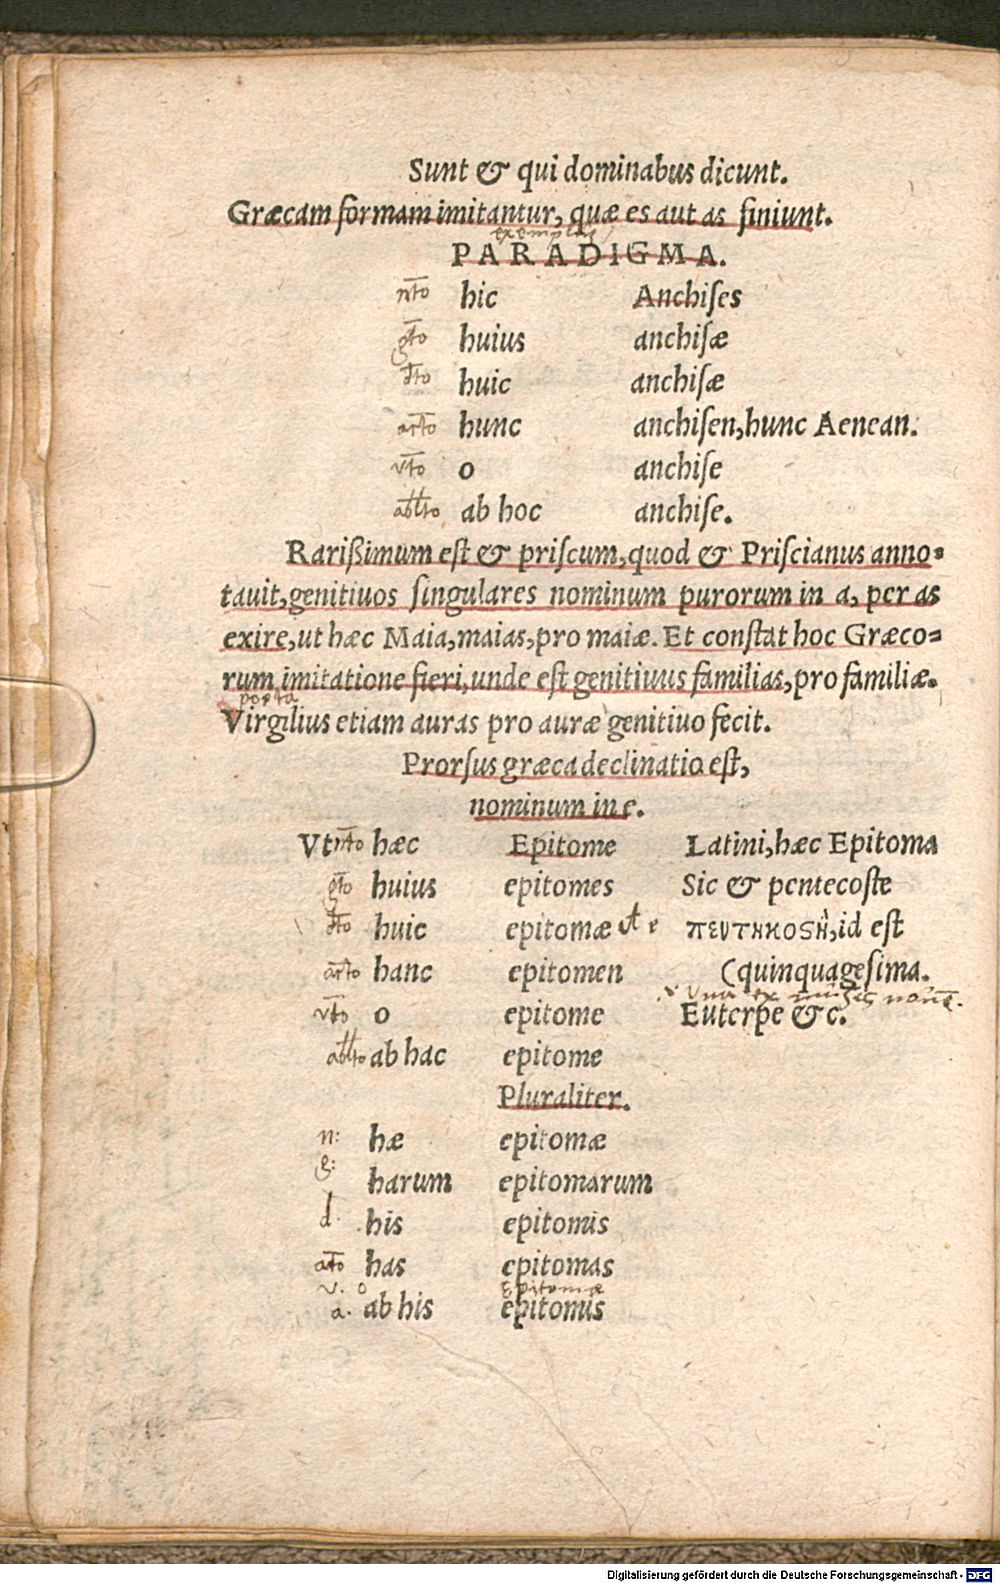 Sunt & qui dominabus dicunt.
Græcam formam imitantur, quæ es aut as finiunt.
PARADIGMA.
nt̄o hic Anchiſes
gt̄o huius anchiſæ
dt̄o huic anchiſæ
act̄o hunc anchiſen, hunc Aenean.
vt̄o o anchiſe
ablt̄o ab hoc anchiſe.
Rarißimum eſt & priſcum, quod & Priſcianus anno-
tauit, genitiuos ſingulares nominum purorum in a, per as
exire, ut hæc Maia, maias, pro maiæ. Et conſtat hoc Græco-
rum imitatione fieri, unde eſt genitiuus familias, pro familiæ.
poeta
Virgilius etiam auras pro auræ genitiuo fecit.
Prorſus græca declinatio eſt,
nominum in e.
Vt nt̄o hæc Epitome Latini, hæc Epitoma
gt̄o huius epitomes Sic & pentecoſte
dt̄o huic epitomæ πεντηκοϛὴ, id eſt
act̄o hanc epitomen (quinquageſima.
vt̄o o epitome Euterpe &c.
ablt̄o ab hac epitome
Pluraliter.
n: hæ epitomæ
g: harum epitomarum
d. his epitomis
act̄o has epitomas
v. o Epitomæ
a. ab his epitomis
Digitalisierung gefördert durch die Deutsche Forschungsgemeinschaft - DFG